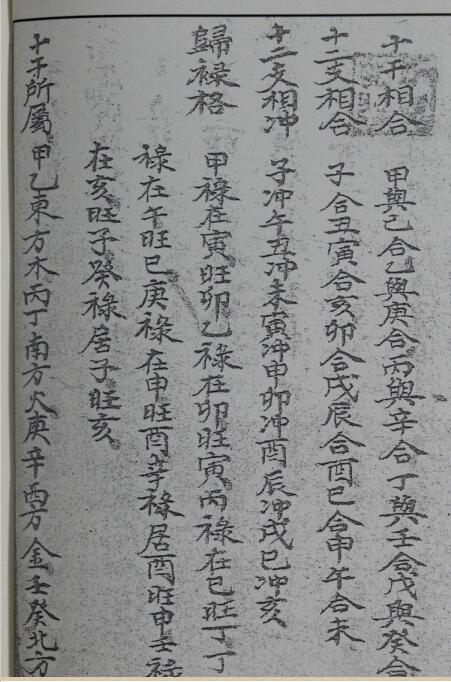 十干相合 甲與己合乙與庚合丙與辛合丁與壬合戊與癸合
十二支相合 子合丑寅合亥卯合戌辰合酉巳合申午合未
十二支相冲 子冲午丑冲未寅冲申卯冲酉辰冲戌巳冲亥
歸祿格 甲祿在寅旺卯乙祿在卯旺寅丙祿在巳旺丁丁
祿在午旺巳庚祿在申旺酉辛祿居酉旺申壬祿
在亥旺子癸祿居子旺亥
十干所屬 甲乙東方木丙丁南方火庚辛西方金壬癸北方